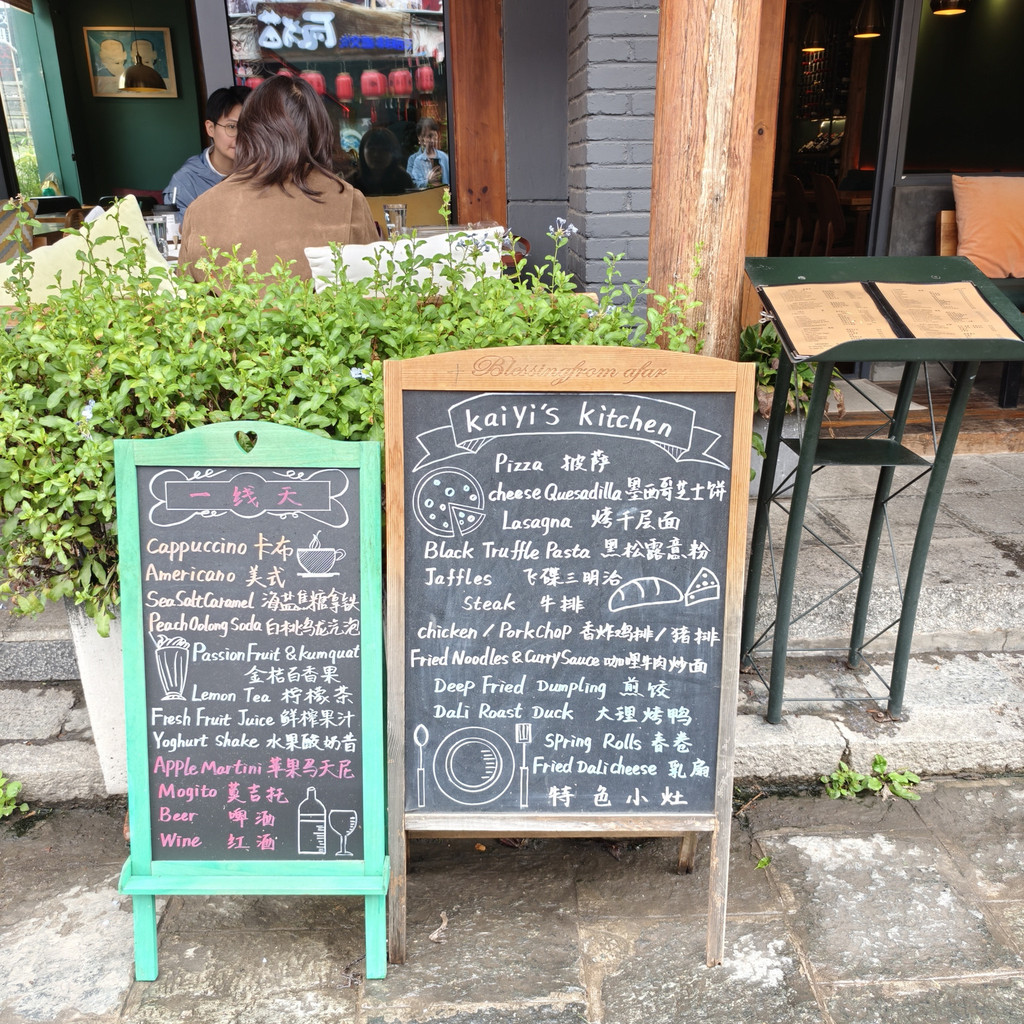 一线天
Cappuccino 卡布
Americano 美式
Sea Salt Caramel 海盐焦糖拿铁
Peach Oolong Soda 白桃乌龙气泡
Passion Fruit & kumquat
金桔百香果
Lemon Tea 柠檬茶
Fresh Fruit Juice 鲜榨果汁
Yoghurt shake 水果酸奶昔
Apple Martini 苹果马天尼
Mogito 莫吉托
Beer 啤酒
Wine 红酒
Blessing from afar
kaiYi's kitchen
Pizza 披萨
cheese Quesadilla 墨西哥芝士饼
Lasagna 烤千层面
Black Truffle Pasta 黑松露意粉
Jaffles 飞碟三明治
Steak 牛排
chicken / Pork Chop 香炸鸡排/猪排
Fried Noodles & Curry Sauce 咖喱牛肉炒面
Deep Fried Dumpling 煎饺
Dali Roast Duck 大理烤鸭
Spring Rolls 春卷
Fried Dali cheese 乳扇
特色小灶